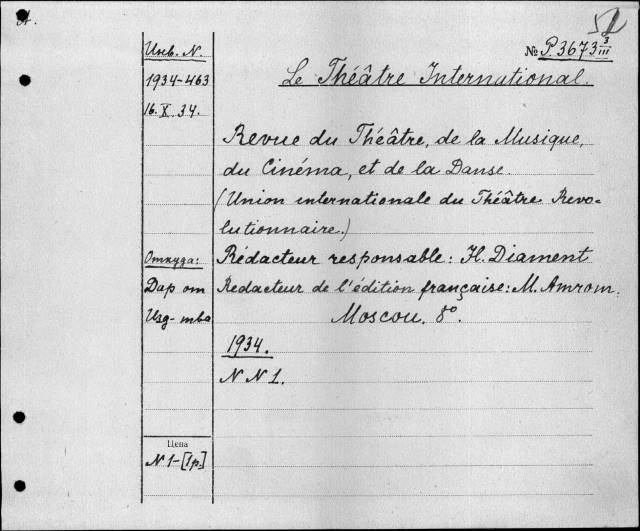 A.
52
Инв. N.
№ P.3673 3/III
1934-463
Le Théâtre International.
16.X.34.
Revue du Théâtre, de la Musique,
du Cinéma, et de la Danse.
(Union internationale du Théâtre Revo-
lutionnaire.)
Откуда:
Rédacteur responsable: H. Diament
Дар от
Redacteur de l'édition française: M. Amrom.
Изд-тва
Moscou. 8°.
1934.
N N 1.
Цена
N 1-[1р.]